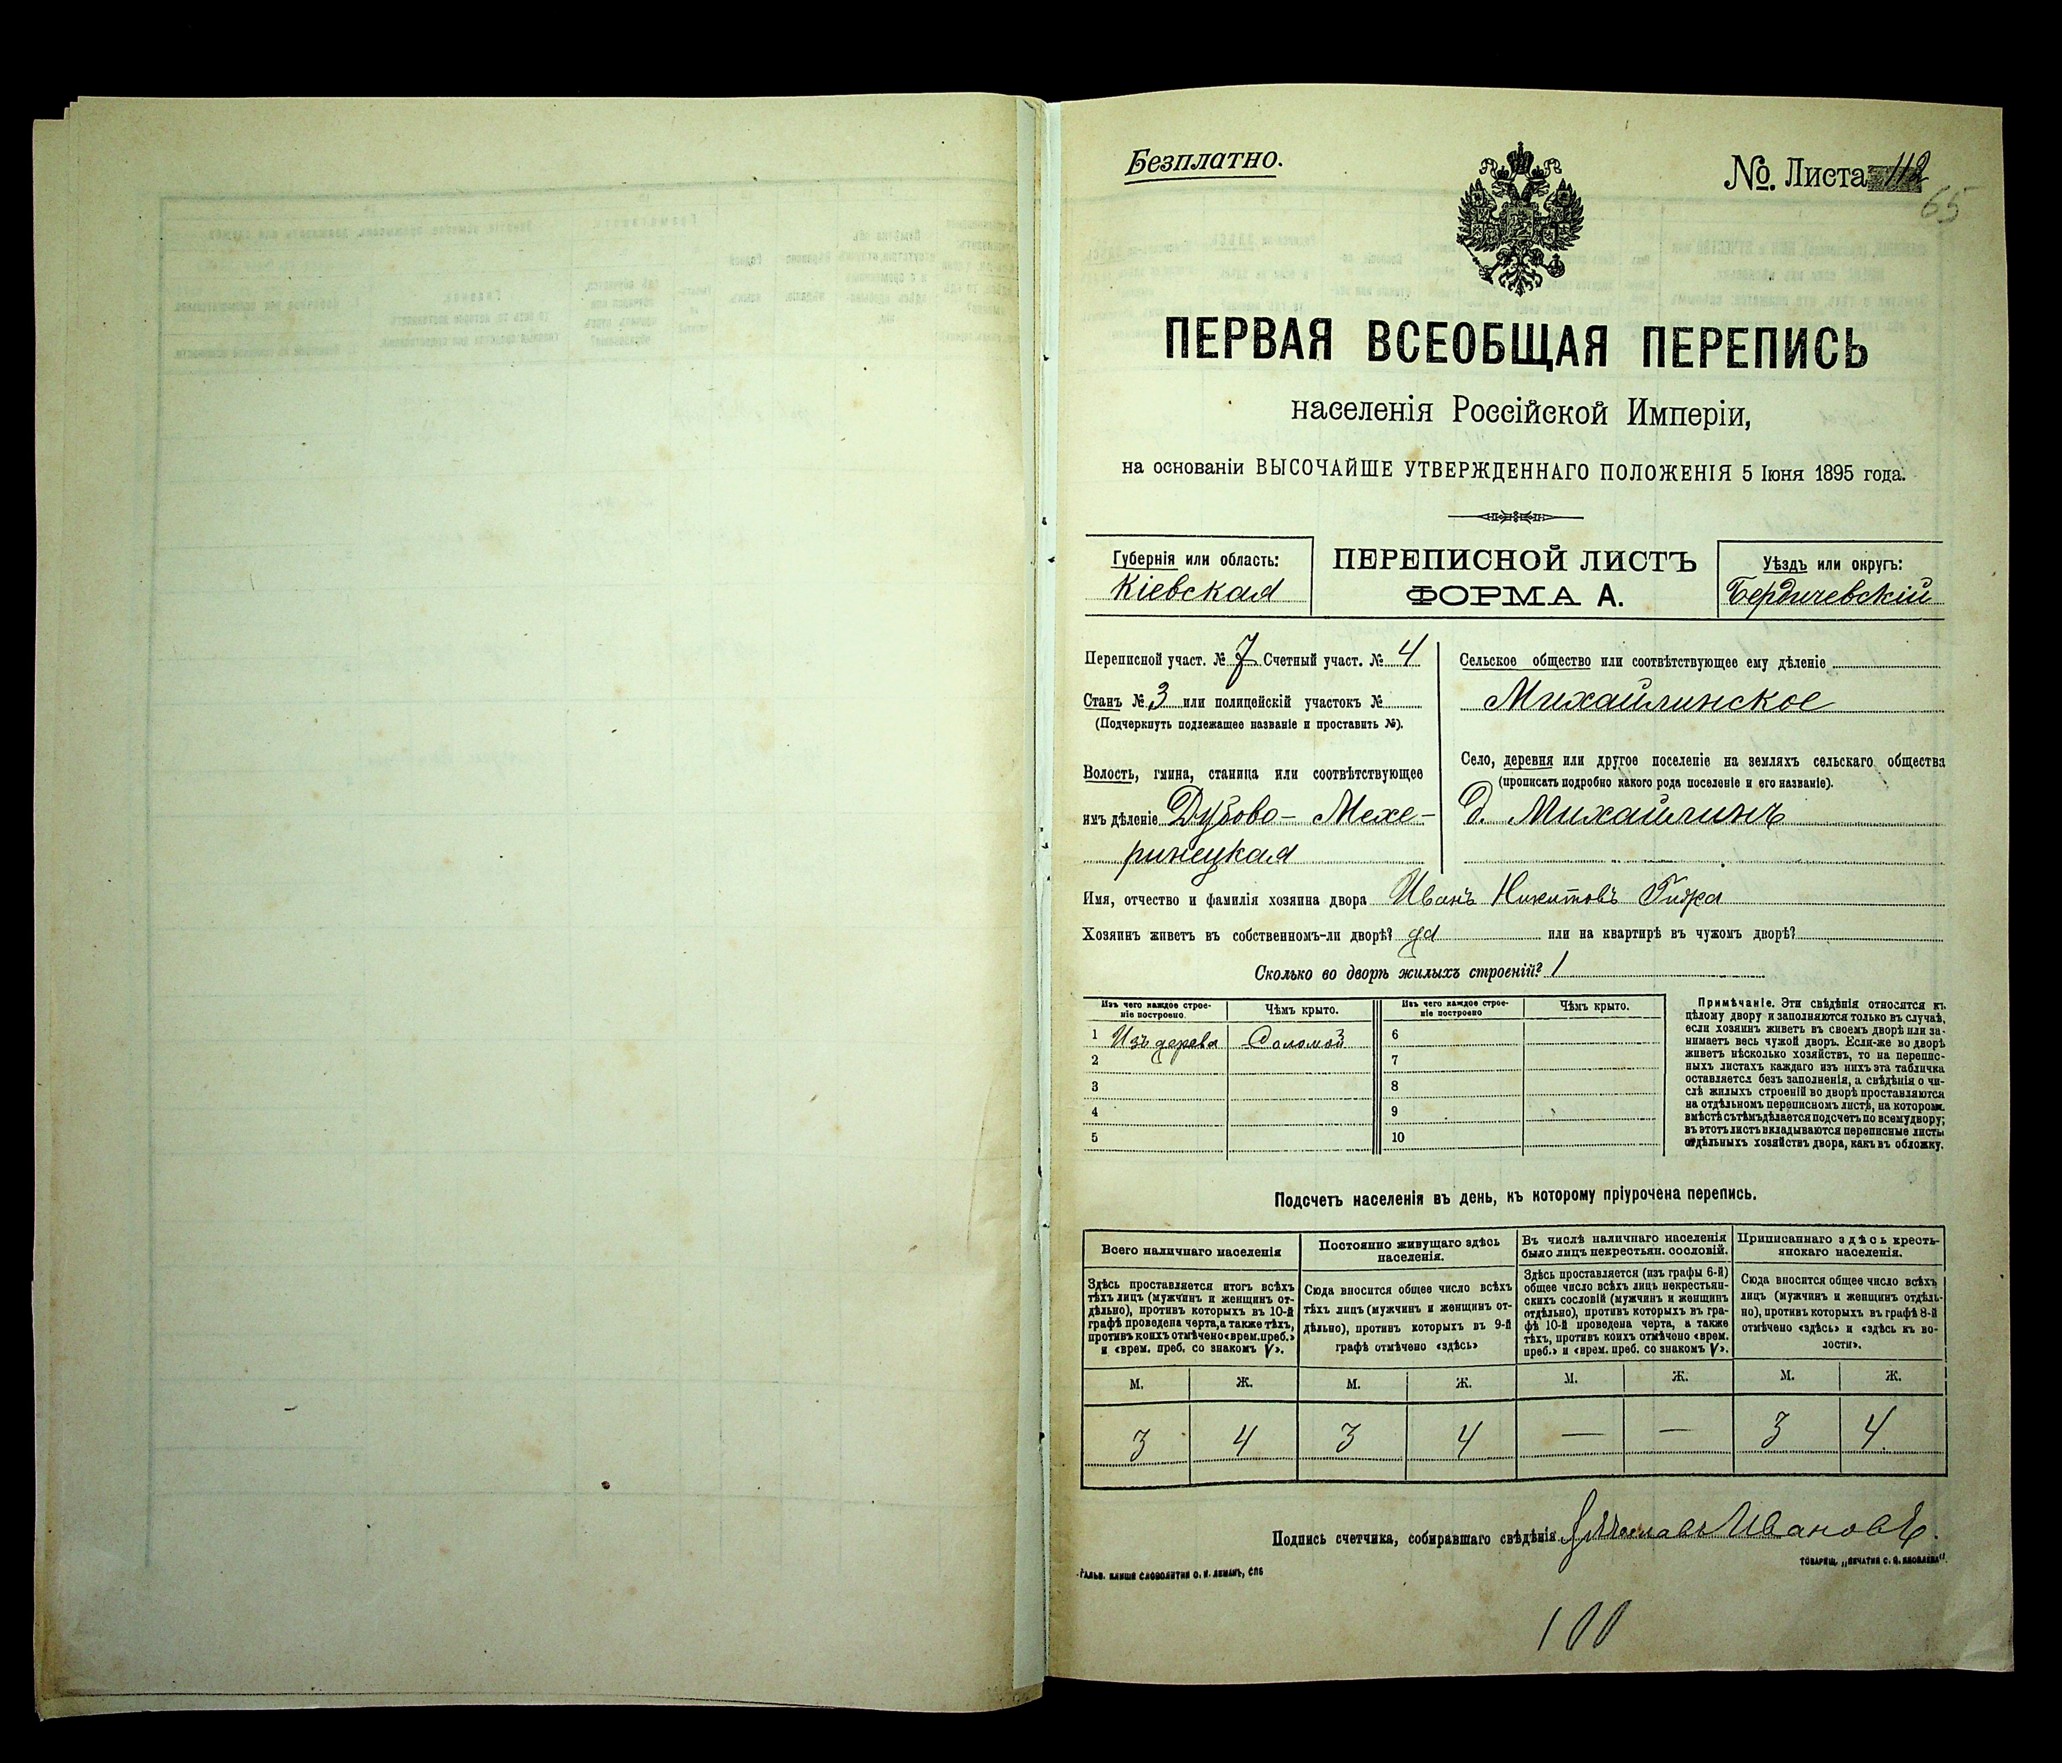 Безплатно.
№. Листа 112
65
ПЕРВАЯ ВСЕОБЩАЯ ПЕРЕПИСЬ
населенія Россійской Имперіи,
на основаніи ВЫСОЧАЙШЕ УТВЕРЖДЕННАГО ПОЛОЖЕНІЯ 5 Іюня 1895 года.
Губернія или область:
Кіевская
ПЕРЕПИСНОЙ ЛИСТЪ
ФОРМА А.
Уѣздъ или округъ:
Бердичевскій
Переписной участ. № 7 Счетный участ. № 4
Станъ № 3 или полицейскій участокъ №
(Подчеркнуть подлежащее названіе и проставить №).
Волость, гмина, станица или соотвѣтствующее
имъ дѣленіе Дубово-Мехе-
ринецкая
Сельское общество или соотвѣтствующее ему дѣленіе
Михайлинское
Село, деревня или другое поселеніе на земляхъ сельскаго общества
(прописать подробно какого рода поселеніе и его названіе).
д. Михайлинъ
Имя, отчество и фамилія хозяина двора Иванъ Никитовъ
Хозяинъ живетъ въ собственномъ-ли дворѣ? да или на квартирѣ въ чужомъ дворѣ?
Сколько во дворѣ жилыхъ строеній? 1
Изъ чего каждое строе-
ніе построено.
Чѣмъ крыто.
Изъ чего каждое строе-
ніе построено
Чѣмъ крыто.
1 Изъ дерева Соломой 6
2 7
3 8
4 9
5 10
Примѣчаніе. Эти свѣдѣнія относятся къ
цѣлому двору и заполняются только въ случаѣ,
если хозяинъ живетъ въ своемъ дворѣ или за-
нимаетъ весь чужой дворъ. Если-же во дворѣ
живетъ нѣсколько хозяйствъ, то на перепис-
ныхъ листахъ каждаго изъ нихъ эта табличка
оставляется безъ заполненія, а свѣдѣнія о чи-
слѣ жилыхъ строеній во дворѣ проставляются
на отдѣльномъ переписномъ листѣ, на которомъ
вмѣстѣ съ тѣмъ дѣлается подсчетъ по всему двору;
въ этотъ листъ вкладываются переписные листы
отдѣльныхъ хозяйствъ двора, какъ въ обложку.
Подсчетъ населенія въ день, къ которому пріурочена перепись.
Всего наличнаго населенія
Здѣсь проставляется итогъ всѣхъ
тѣхъ лицъ (мужчинъ и женщинъ от-
дѣльно), противъ которыхъ въ 10-й
графѣ проведена черта, а также тѣхъ,
противъ коихъ отмѣчено «врем. преб.»
и «врем. преб. со знакомъ V».
Постоянно живущаго здѣсь
населенія.
Сюда вносится общее число всѣхъ
тѣхъ лицъ (мужчинъ и женщинъ от-
дѣльно), противъ которыхъ въ 9-й
графѣ отмѣчено «здѣсь»
Въ числѣ наличнаго населенія
было лицъ некрестьян. сословій.
Здѣсь проставляется (изъ графы 6-й)
общее число всѣхъ лицъ некрестьян-
скихъ сословій (мужчинъ и женщинъ
отдѣльно), противъ которыхъ въ гра-
фѣ 10-й проведена черта, а также
тѣхъ, противъ коихъ отмѣчено «врем.
преб.» и «врем. преб. со знакомъ V».
Приписаннаго здѣсь кресть-
янскаго населенія.
Сюда вносится общее число всѣхъ
лицъ (мужчинъ и женщинъ отдѣль-
но), противъ которыхъ въ графѣ 8-й
отмѣчено «здѣсь» и «здѣсь къ во-
лости».
М. Ж. М. Ж. М. Ж. М. Ж.
3 4 3 4 — — 3 4
Подпись счетчика, собиравшаго свѣдѣнія Ивановъ.
ГАЛЬВ. КЛИШЕ СЛОВОЛИТНИ О. И. ЛЕМАНЪ, СПБ
ТОВАРИЩ. „ПЕЧАТНЯ С. П. ЯКОВЛЕВА".
100